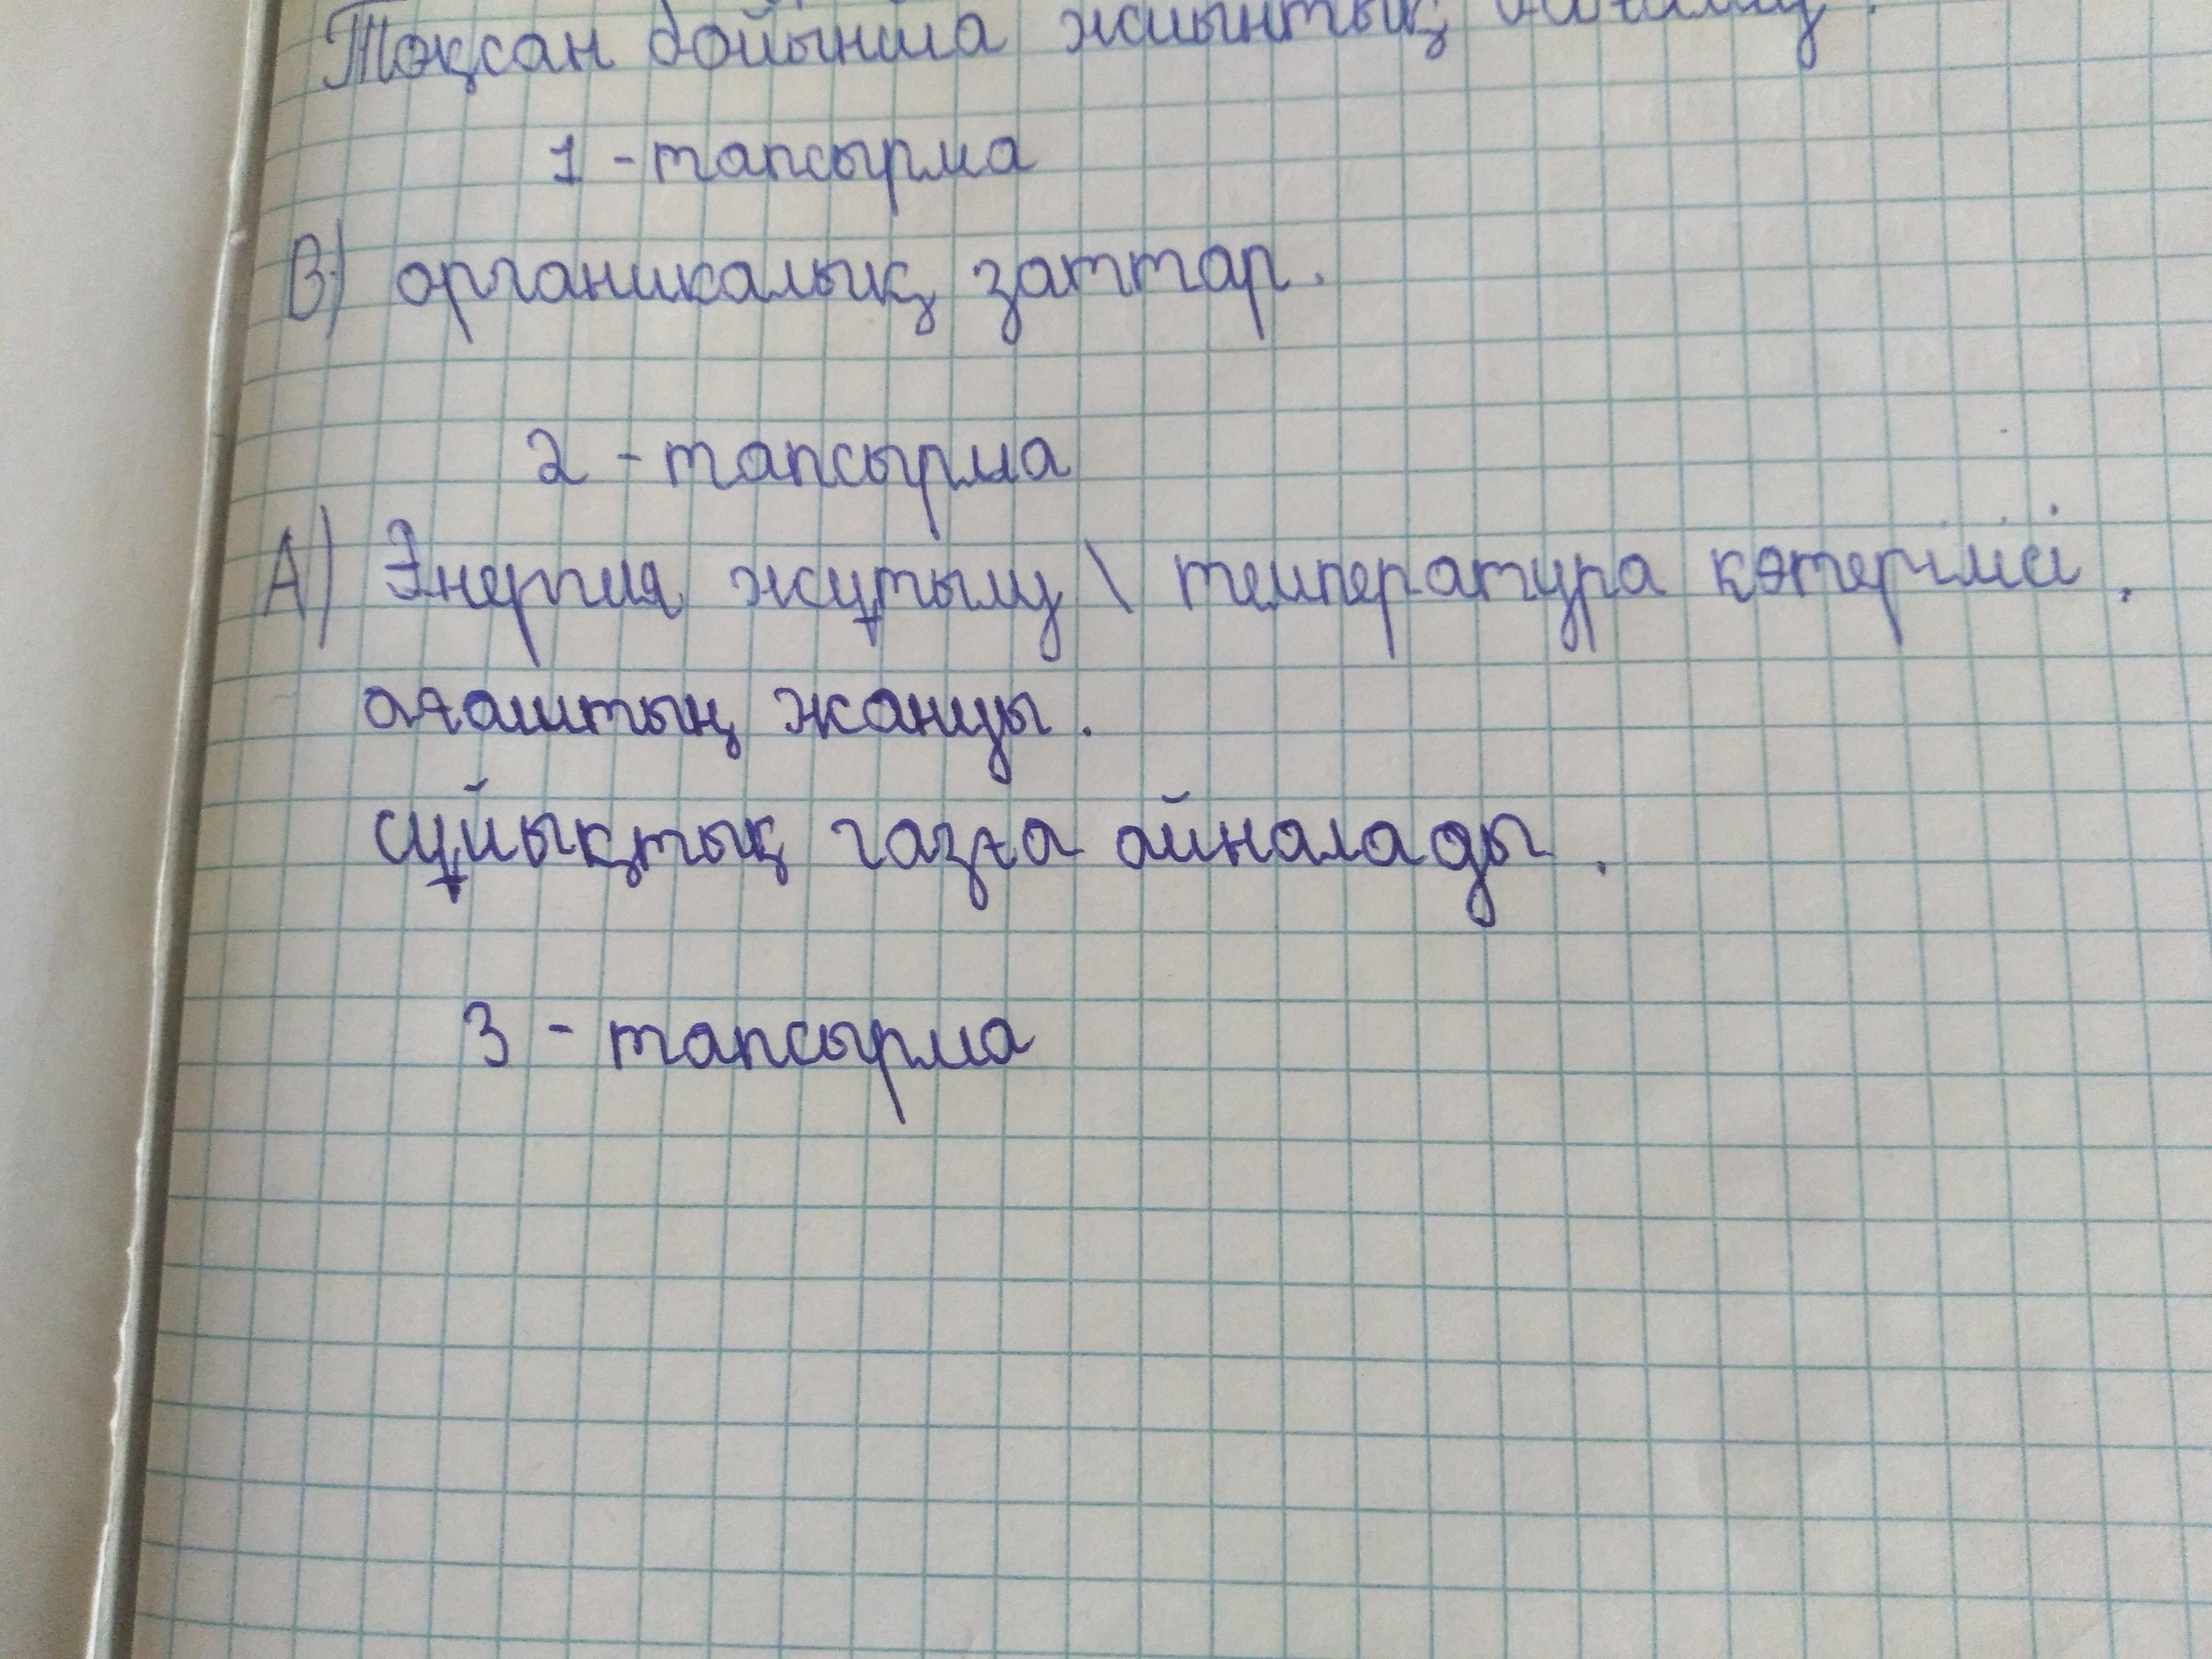 Тоқсан бойынша жиынтық бағалау.
1 - тапсырма
В) органикалық заттар.
2 - тапсырма
А) Энергия жұтылу \ температура көтерімсі.
ағаштың жануы.
сұйықтық газға айналады.
3 - тапсырма